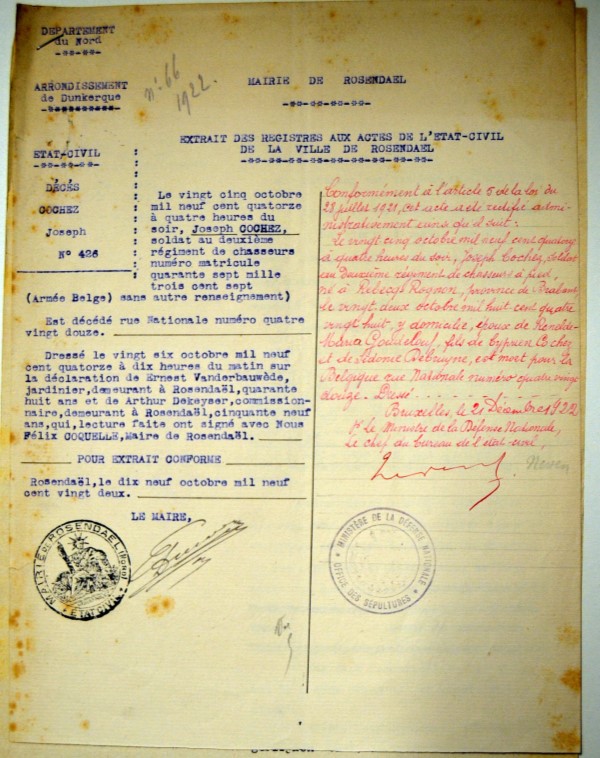 DEPARTEMENT
du Nord
ARRONDISSEMENT
de Dunkerque
n° 66
1922.
MAIRIE DE ROSENDAEL
EXTRAIT DES REGISTRES AUX ACTES DE L'ETAT-CIVIL
DE LA VILLE DE ROSENDAEL
ETAT-CIVIL
DÉCÈS
COCHEZ
Joseph
N° 426
Le vingt cinq octobre
mil neuf cent quatorze
à quatre heures du
soir, Joseph COCHEZ,
soldat au deuxième
régiment de chasseurs
numéro matricule
quarante sept mille
trois cent sept
(Armée Belge) sans autre renseignement)
Est décédé rue Nationale numéro quatre
vingt douze.
Dressé le vingt six octobre mil neuf
cent quatorze à dix heures du matin sur
la déclaration de Ernest Vanderbauwède,
jardinier, demeurant à Rosendaël, quarante
huit ans et de Arthur Dekeyser, commission-
naire, demeurant à Rosendaël, cinquante neuf
ans, qui, lecture faite ont signé avec Nous
Félix COQUELLE, Maire de Rosendaël.
POUR EXTRAIT CONFORME
Rosendaël, le dix neuf octobre mil neuf
cent vingt deux.
LE MAIRE,
MAIRIE DE ROSENDAEL (NORD)
ETAT CIVIL
Conformément à l'article 5 de la loi du
28 juillet 1921, cet acte est rectifié admi-
nistrativement ainsi qu'il suit:
Le vingt cinq octobre mil neuf cent quatorze
à quatre heures du soir, Joseph Cochez, soldat
au Deuxième régiment de chasseurs à pied,
né à Rebecq Rognon, province de Brabant,
le vingt deux octobre mil huit cent quatre
vingt huit, y domicilié, époux de
Maria, fils de Cyprien Cochez
et de Adonie Debruyne, est mort pour la
Belgique rue Nationale numéro quatre vingt
douze. Dressé
Bruxelles, le 21 Décembre 1922
Pr le Ministre de la Défense Nationale,
le chef du bureau de l'état-civil,
MINISTÈRE DE LA DÉFENSE NATIONALE
OFFICE DES SÉPULTURES